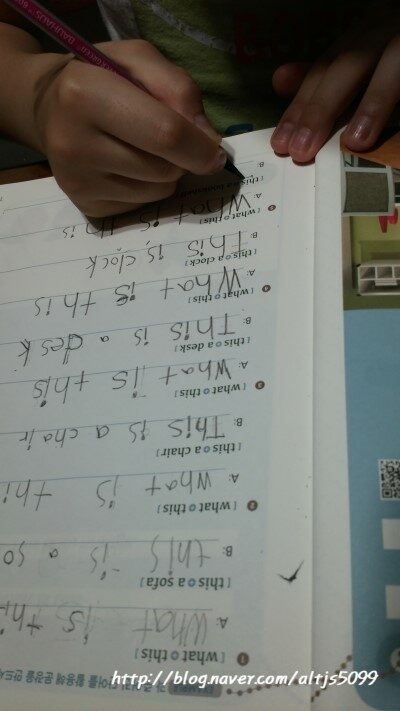 단어를 활용해 문장을
1 [ what this ]
A. What is thi
[ this a sofa ]
B. this is a so
2 [ what this ]
A. what is thi
[ this a chair ]
B. This is a chair
3 [ what this ]
A. What is this
[ this a desk ]
B. This is a desk
4 [ what this ]
A. What is this
[ this a clock ]
B. This is clock
5 [ what this ]
A. What is this
[ this a bookshelf ]
B.
BAUHAUS
http://blog.naver.com/altjs5099